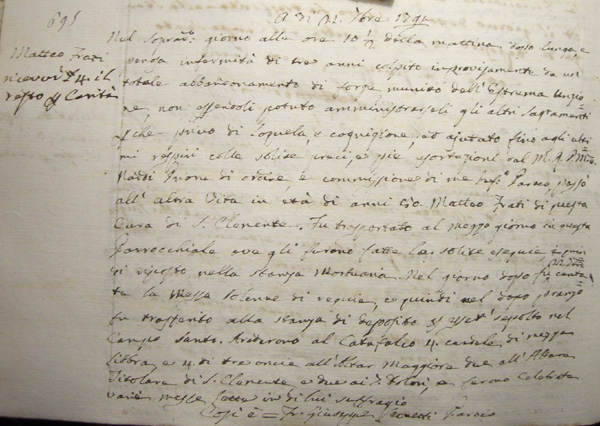 695
Matteo Frati
ricevuti # 4. il
resto per Carità
A dì 21. 9bre 1795
Nel sopradº giorno alle ore 10 1/2 della mattina dopo lunga, e
penosa infermità di tre anni colpito improvisamente da un
totale abbandonamento di forze munito dell'Estrema Unzio
ne, non essendosi potuto amministrarseli gli altri Sagramenti
perche privo di loquela, e cognizione, ed ajutato fino agli ulti
mi respiri colle solite preci, e pie esortazioni dal M. R.
Naldi d'ordine, e commissione di me Parocº passò
all'altra Vita in età di anni 60. Matteo Frati di questa
Cura di S. Clemente. Fu trasportato al mezzo giorno in questa
Parrocchiale ove gli furono fatte le solite esequie, e quin
di riposto nella stanza Mortuaria. Nel giorno dopo fu canta
ta la Messa solenne di requie, e quindi nel dopo pranzo
fu trasferito alla stanza di deposito per esser sepolto nel
Campo Santo. Arderono al Catafalco 4. candele di mezza
libbra, e 4. di tre oncie all'Altar Maggiore due all'Altare
Titolare di S. Clemente e due ai, e furono celebrate
varie messe lette in di lui suffragio
Così è = Fr. Giuseppe Paroco